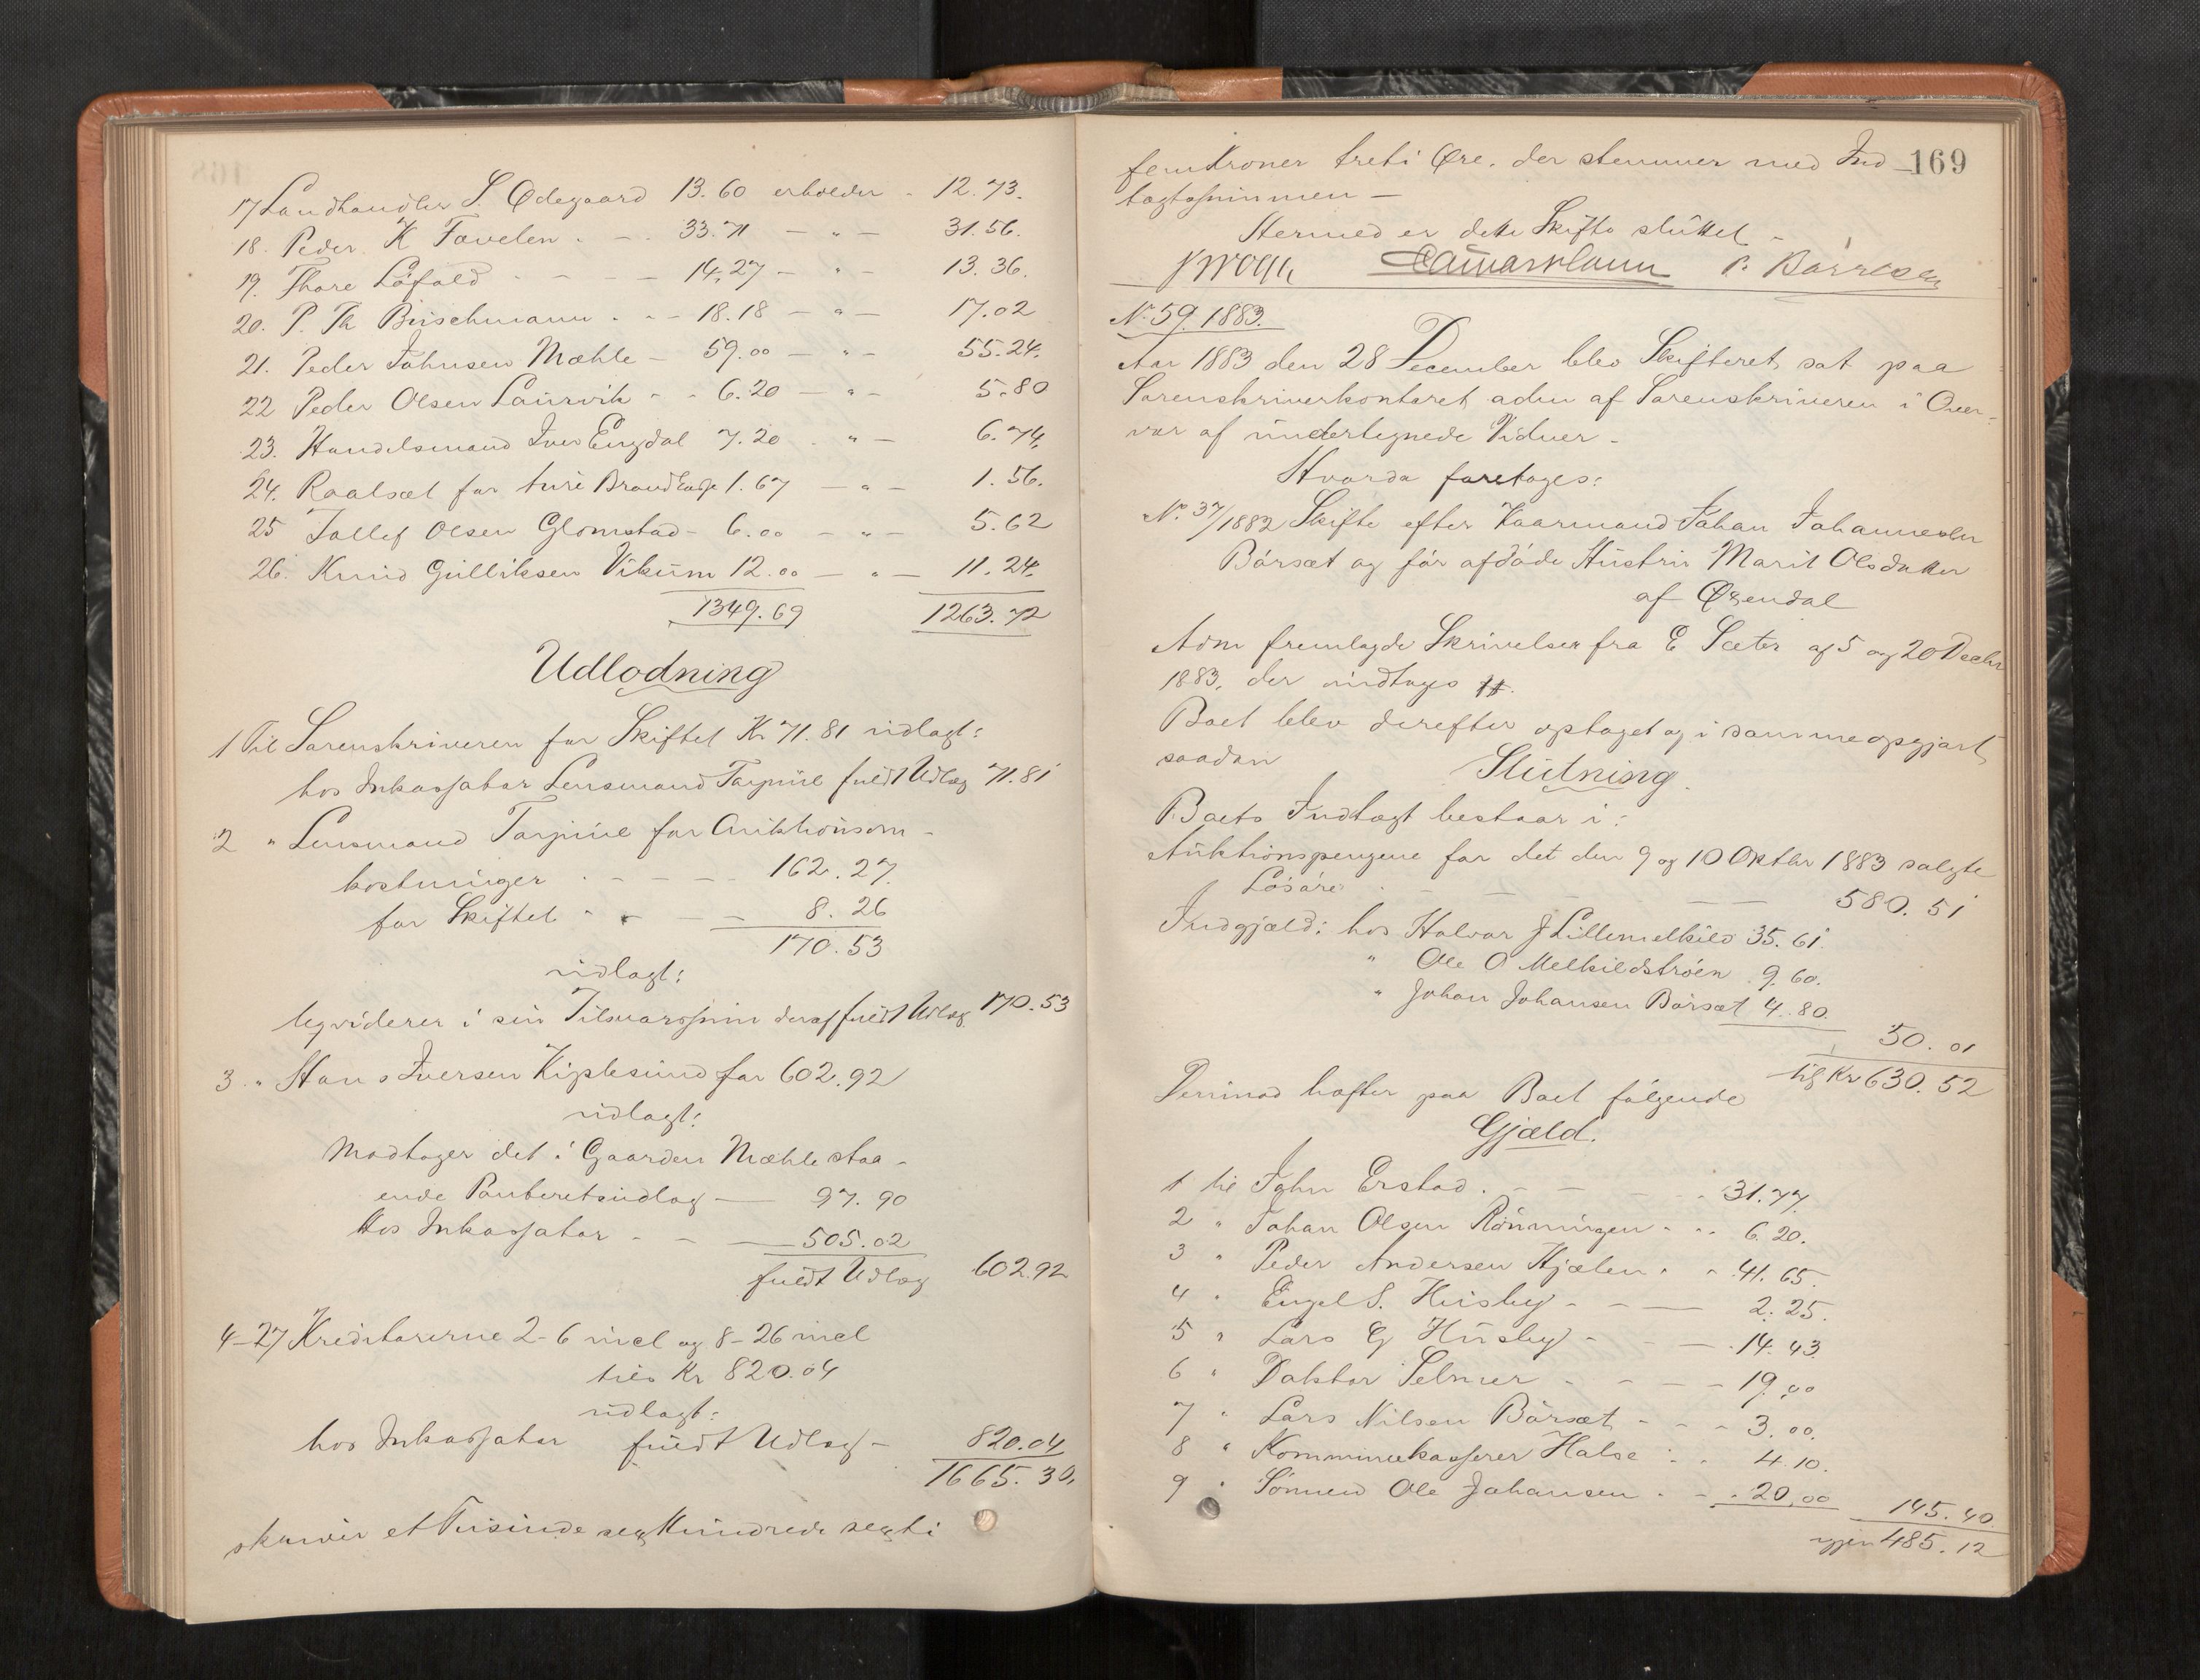 17 Landhandler S. Ødegaard 13.60 erholder - 12.73.
18. Peder K Tavelen - 33.71 — " — 31.56.
19. Thore Löfald - - - 14,27 — " — 13.36.
20. P. Th Birschmann - - 18.18 — " — 17.02
21. Peder Johnsen Mæhle - 59.00 — " — 55.24.
22 Peder Olsen Laurvik - - 6.20 — " — 5.80
23. Handelsmand Iver Engdal 7.20 - " — 6.74,
24. Raalsæt for 1.67 — " — 1.56.
25 Tollef Olsen Glomstad - 6.00 — " — 5.62
26. Knud Gulliksen Vikum 12.00 — " — 11.24.
1349.69 1263.72
Udlodning
1 Til Sorenskriveren for Skiftet Kr 71.81 udlagt:
hos Inkassator Lensmand Tarjule fuldt Udlæg 71.81
2 " Lensmand Tarjule for Auktionsom-
kostninger - - - - 162.27.
for Skiftet - - — 8.26
170.53
udlagt:
leqviderer i sin Tilsvarssum deraf fuldt Udlæg 170.53
3 " Hans Iversen Kiplesund for 602.92
udlagt:
Modtager det i Gaarden Mæhle staa-
ende Panteretsudlæg — 97.90
Hos Inkassator - - — 505.02
fuldt Udlæg 602.92
4-27 Kreditorerne 2-6 incl og 8-26 incl
tils Kr 820.04
udlagt:
hos Inkassator fuldt Udlæg - 820.04
1665.30.
skriver et Tusinde sex Hundrede sexti
169
femkroner treti Øre. der stemmer med Ind-
tægtssummen —
Hermed er dette Skifte sluttet -
P. Börresen
No 59. 1883.
Aar 1883 den 28 December blev Skifteret sat paa
Sorenskriverkontoret adm af Sorenskriveren i Over-
vær af undertegnede Vidner -
Hvorda foretoges:
No. 37/1882 Skifte efter Kaarmand Johan Johannesen
Börsæt og før afdöde Hustru Marit Olsdatter
af Øxendal
Adm fremlagde Skrivelser fra E Sæter af 5 og 20 Decbr
1883, der indtages
Boet blev derefter optaget og i samme opgjort
saadan
Slutning
Boets Indtægt bestaar i:
Auktionspengene for det den 9 og 10 Oktbr 1883 solgte
Lösöre - - - — — 580.51
Indgjæld: hos Halvor J Lillemelkild 35.61.
" Ole O Melkildströen 9.60.
" Johan Johansen Börsæt 4.80.
50.01
tils Kr 630.52
Derimod hæfter paa Boet fölgende
Gjæld.
1 til John Erstad. - - - - 31.77.
2 " Johan Olsen Rönningen - - 6.20.
3 " Peder Andersen Hjælen - - 41.65.
4 " Engel S. Husby - - — 2.25.
5 " Lars G Husby - - — 14.43.
6 " Doktor Selmer - - - - 19.00
7 " Lars Nilsen Börsæt - - - 3.00.
8 " Kommunekasserer Halse - - 4.10.
9 " Sönnen Ole Johansen - - 20,00 145.40
igjen 485.12